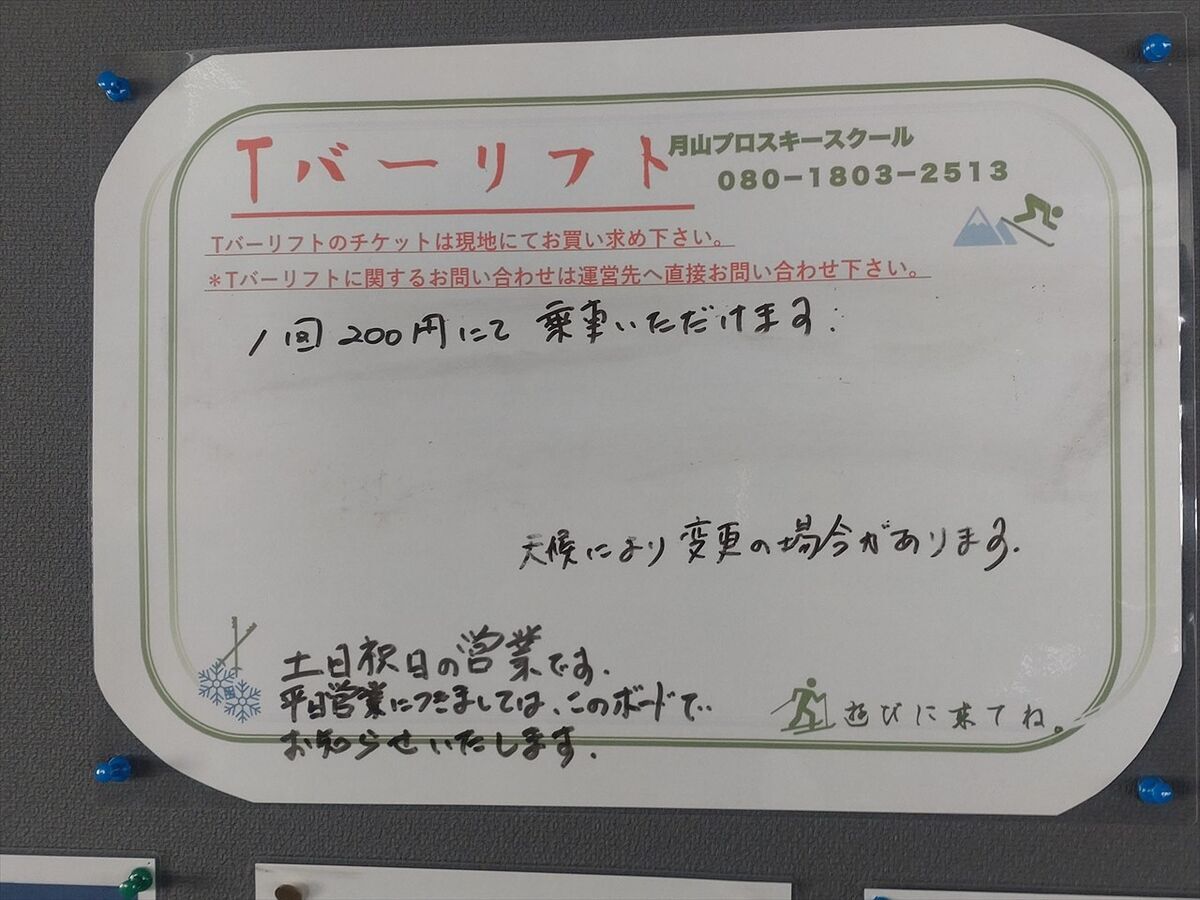 Tバーリフト
月山プロスキースクール
080-1803-2513
Tバーリフトのチケットは現地にてお買い求め下さい。
*Tバーリフトに関するお問い合わせは運営先へ直接お問い合わせ下さい。
1回200円にて乗車いただけます.
天候により変更の場合があります.
土日祝日の営業です.
平日営業につきましては、このボードで
お知らせいたします.
遊びに来てね。